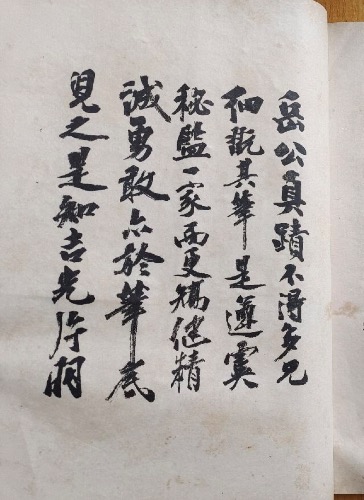 岳公真蹟不得多見
細翫其筆是遵虞
秘監一家而更矯健精
誠勇敢亦於筆底
見之是知吉光片羽